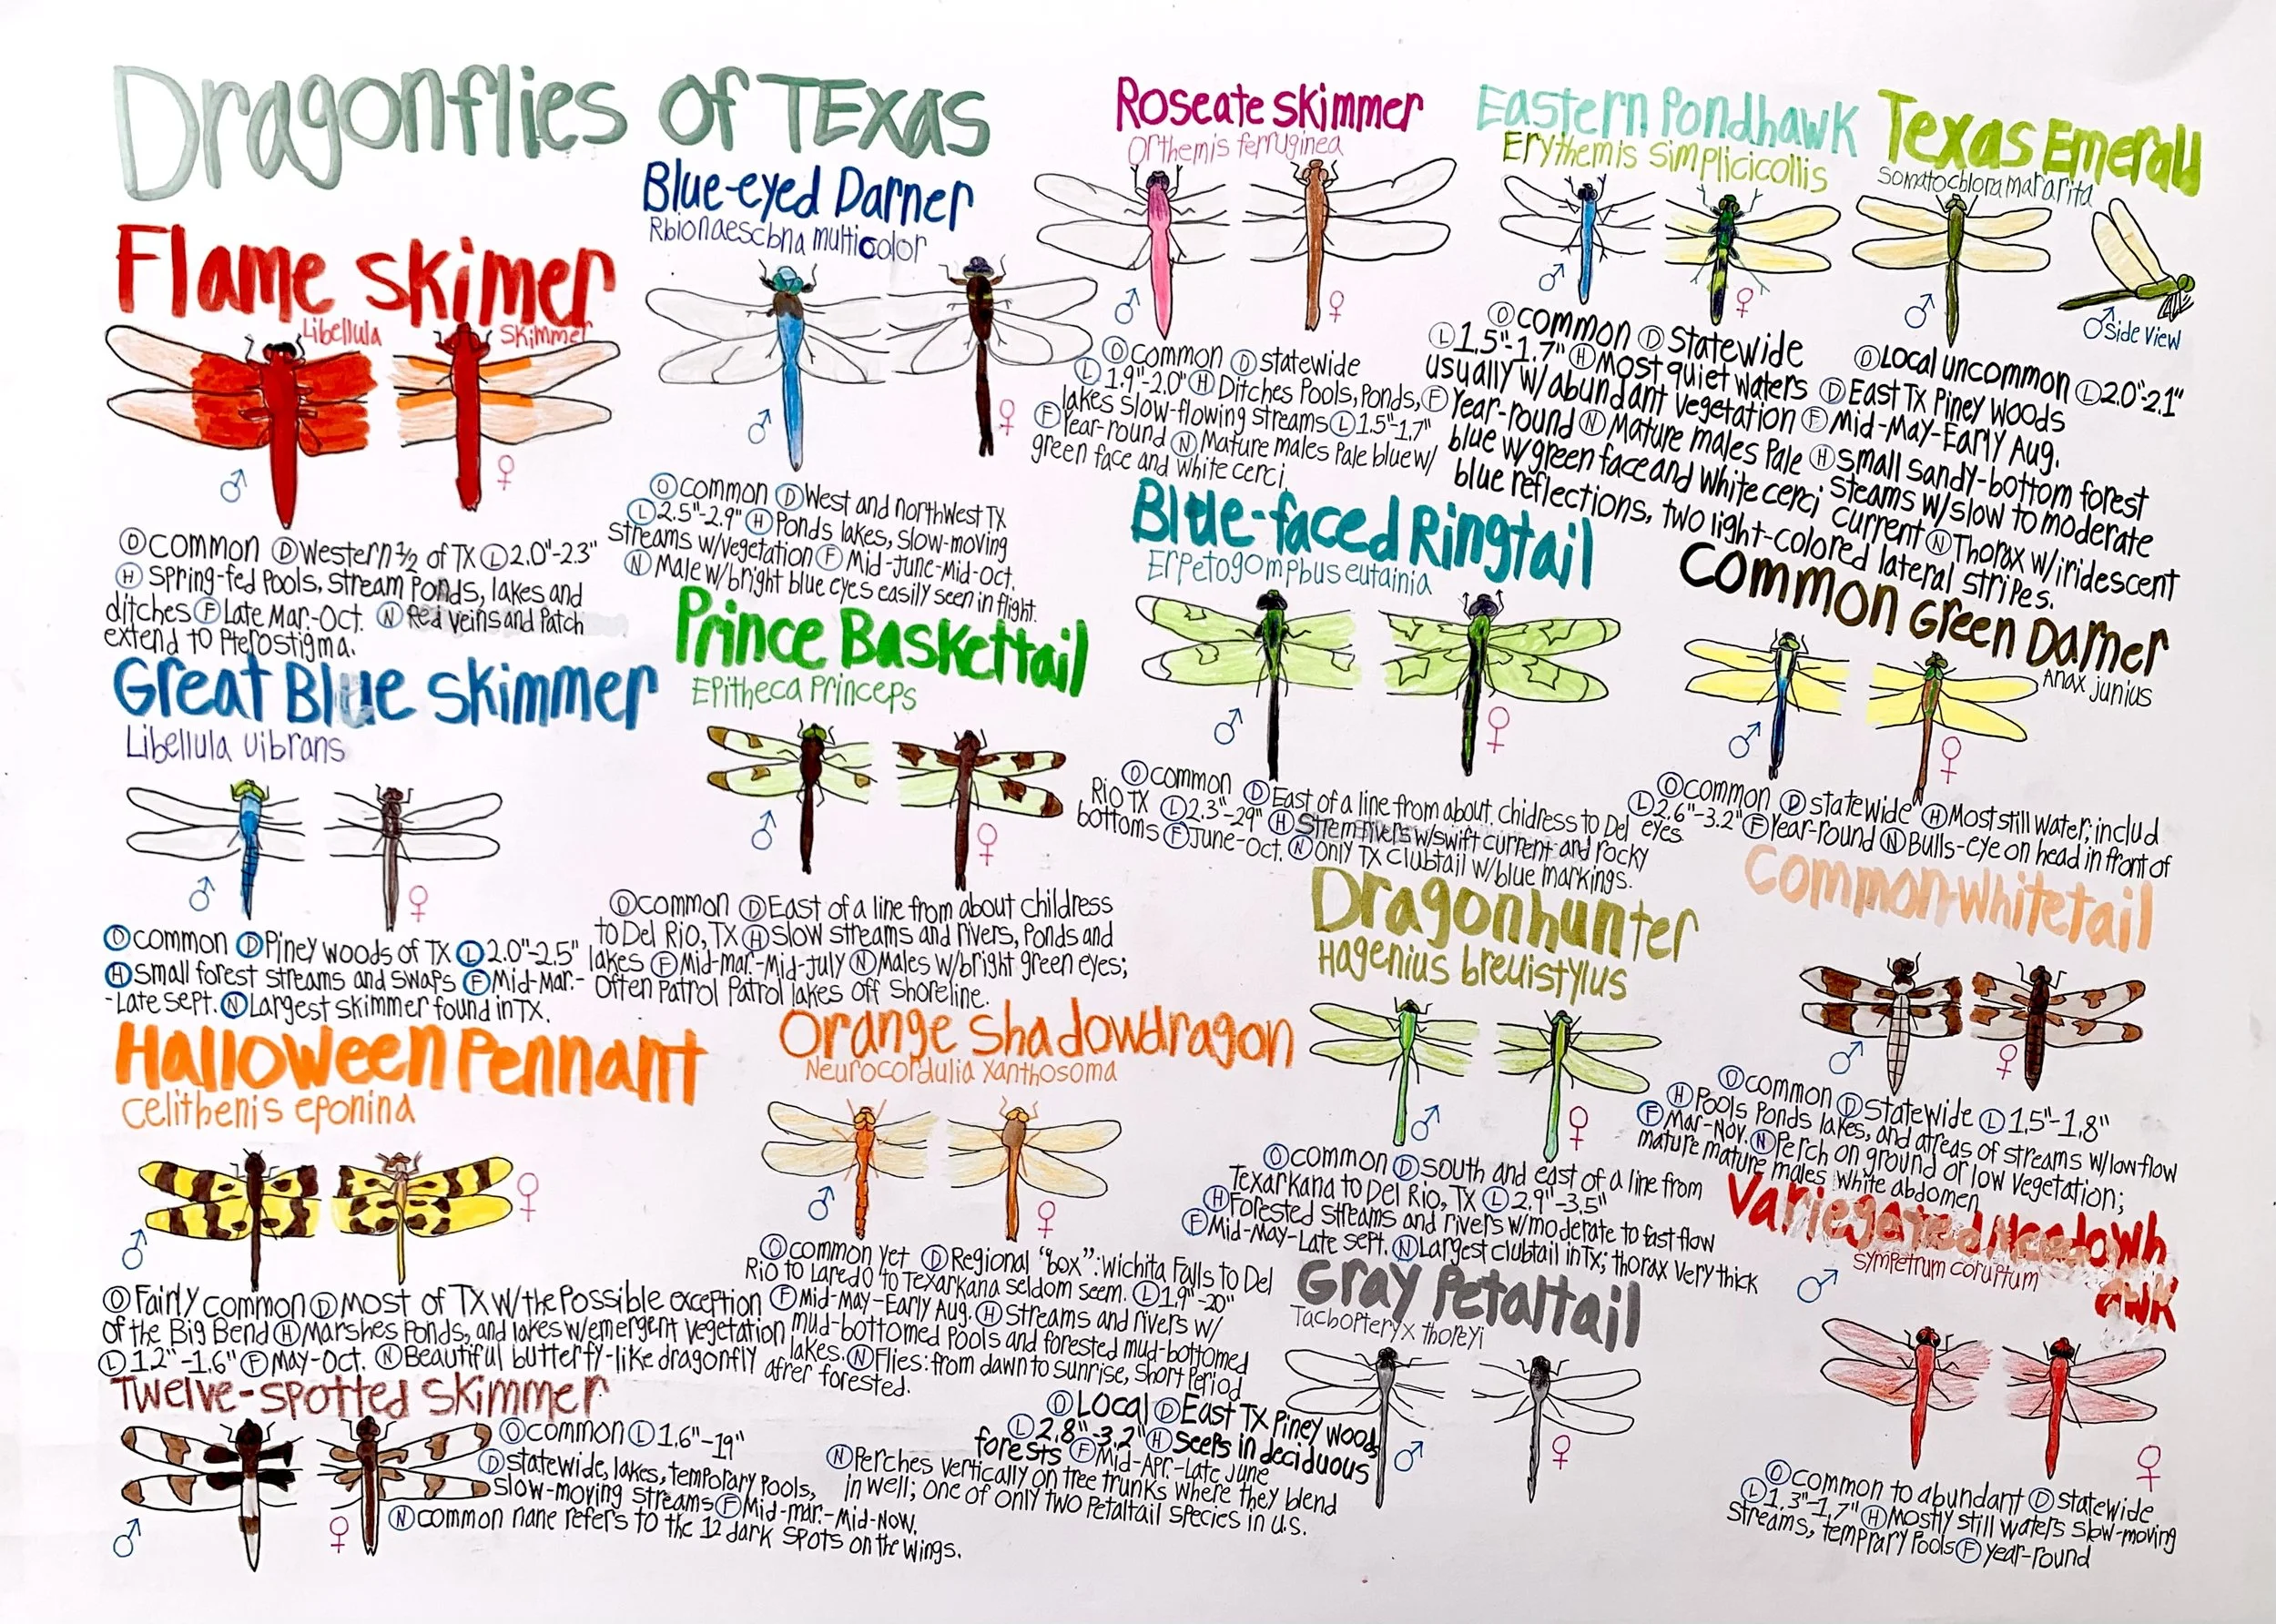 Dragonflies of TExas
Flame skimer
Libellula
skimmer
♂
♀
Ⓞcommon ⒹWestern ½ of TX Ⓛ2.0"-2.3"
Ⓗ Spring-fed Pools, stream Ponds, lakes and
ditches Ⓕ Late Mar.-Oct. Ⓝ Red veins and Patch
extend to Pterostigma.
Blue-eyed Darner
Rbionaescbna multicolor
♂
♀
Ⓞcommon ⒹWest and northwest TX
Ⓛ2.5"-2.9" ⒽPonds lakes, slow-moving
streams w/vegetation Ⓕ Mid-June-Mid-Oct.
ⓃMale w/bright blue eyes easily seen in flight.
Roseate skimmer
Orthemis ferruginea
♂
♀
Ⓞcommon Ⓓ statewide
Ⓛ 1.9"-2.0" Ⓗ Ditches Pools, Ponds,
lakes slow-flowing streams Ⓛ1.5"-1.7"
ⒻYear-round Ⓝ Mature males Pale blue w/
green face and white cerci.
Eastern Pondhawk
Erythemis simplicicollis
♂
♀
Ⓞcommon Ⓓ Statewide
Ⓛ1.5"-1.7" ⒽMost quiet waters
usually w/abundant vegetation
ⒻYear-round Ⓝ Mature males Pale
blue w/green face and white cerci
Texas Emerald
Somatochlora mararita
♂
♂side view
ⓄLocal uncommon Ⓛ2.0"-2.1"
ⒹEast TX Piney Woods
Ⓕ Mid-May-Early Aug.
Ⓗsmall sandy-bottom forest
steams w/slow to moderate
current ⓃThorax w/iridescent
blue reflections, two light-colored lateral stripes.
Great Blue skimmer
Libellula vibrans
♂
♀
Ⓞcommon ⒹPiney woods of TX Ⓛ2.0"-2.5"
Ⓗsmall forest streams and swaps ⒻMid-Mar.-
-Late sept. ⓃLargest skimmer found in TX.
Prince Baskettail
Epitheca Princeps
♂
♀
Ⓞcommon ⒹEast of a line from about childress
to Del Rio, TX Ⓗslow streams and rivers, Ponds and
lakes ⒻMid-mar.-Mid-July ⓃMales w/bright green eyes;
Often Patrol Patrol lakes off shoreline.
Blue-faced Ringtail
Erpetogompbus eutainia
♂
♀
Ⓞcommon ⒹEast of a line from about. chidress to Del
Rio TX Ⓛ2.3"-29" Ⓗ strem rivers w/swift current and rocky
bottoms ⒻJune-Oct. Ⓝonly TX clubtail w/blue markings.
Common Green Darner
Anax junius
♂
♀
Ⓞcommon Ⓓstatewide ⒽMost still water; includ
Ⓛ2.6"-3.2" ⒻYear-round ⓃBulls-eye on head in front of
eyes
Halloween Pennant
Celithenis eponina
♂
♀
ⓄFairly common ⒹMost of TX w/the Possible exception
of the Big Bend ⒽMarshes Ponds, and lakes w/emergent vegetation
Ⓛ 1.2"-1.6" ⒻMay-Oct. ⓃBeautiful butterfy-like dragonfly
Orange shadowdragon
Neurocordulia xanthosoma
♂
♀
Ⓞcommon yet ⒹRegional "box": wichita Falls to Del
Rio to Laredo to Texarkana seldom seem. Ⓛ1.9"-20"
ⒻMid-May-Early Aug. Ⓗstreams and rivers w/
mud-bottomed Pools and forested mud-bottomed
lakes. ⓃFlies: from dawn to sunrise, short Period
afrer forested.
Dragonhunter
Hagenius brevistylus
♂
♀
Ⓞcommon Ⓓsouth and east of a line from
Texarkana to Del Rio, TX Ⓛ2.9"-3.5"
ⒽForested streams and rivers w/moderate to fast flow
ⒻMid-May-Late sept. ⓃLargest clubtail in Tx; thorax very thick
Common whitetail
♂
♀
Ⓞcommon Ⓓstatewide Ⓛ 1.5"-1.8"
ⒽPools Ponds lakes, and atreas of streams w/low flow
ⒻMar-Nov. ⓃPerch on ground or low vegetation;
mature mature males white abdomen
Twelve-spotted skimmer
♂
♀
Ⓞcommon Ⓛ 1.6"-19"
Ⓓstatewide, lakes, temporary Pools,
slow-moving streams ⒻMid-mar.-Mid-Now.
Ⓝcommon nane refers to the 12 dark spots on the wings.
Gray Petaltail
Tachopteryx thoreyi
♂
♀
ⓄLocal ⒹEast TX Piney wood
Ⓛ2.8"-3.2" Ⓗ seeps in deciduous
forests ⒻMid-Apr.-Late June
ⓃPerches vertically on tree trunks where they blend
in well; one of only two Petaltail species in u.s.
Variegated Meadowh
awk
sympetrum coruptum
♂
♀
Ⓞcommon to abundant Ⓓstatewide
Ⓛ1.3"-1.7" ⒽMostly still waters slow-moving
streams, temprary Pools Ⓕ year-round